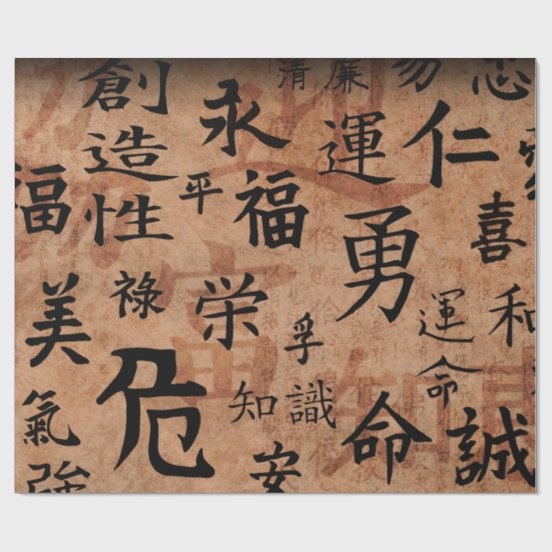 創造性
永
清廉
運
仁
福
平
福
勇
喜
美
祿
栄
孚
運命
和
氣
危
知識
命
誠
安
強